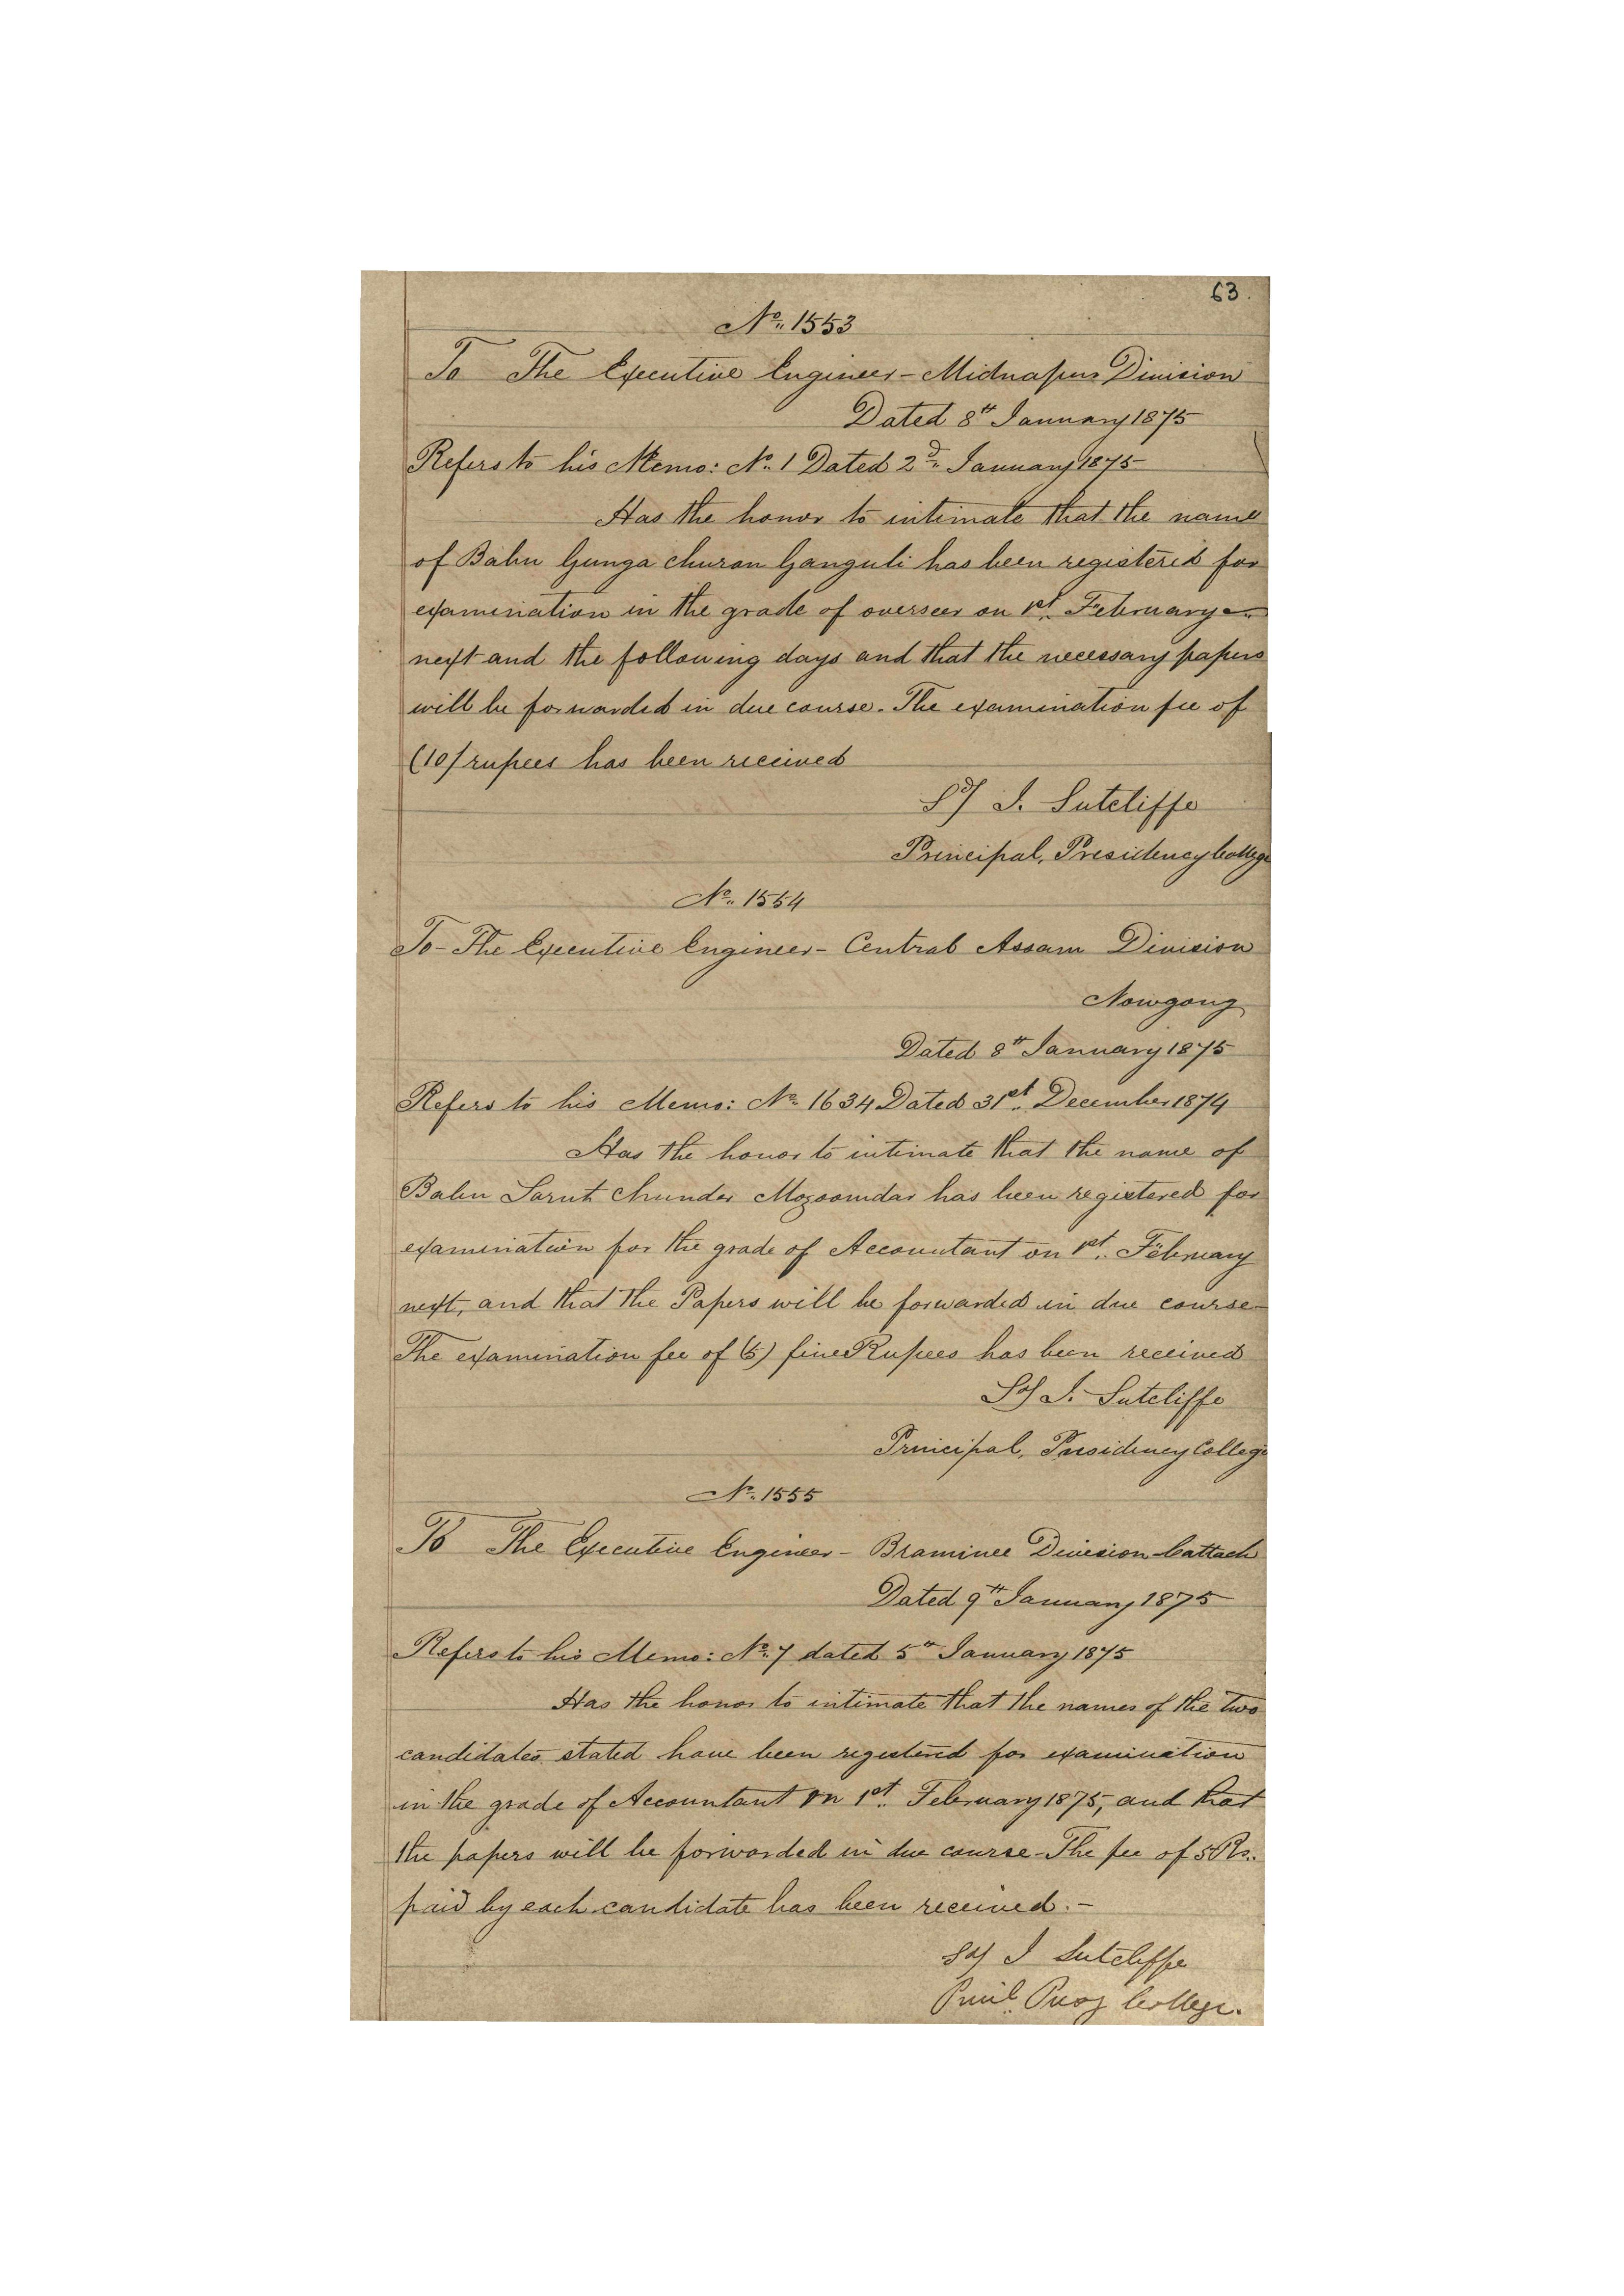 63.
No. 1553
To The Executive Engineer - Midnapur Division
Dated 8th January 1875
Refers to his Memo: No. 1 Dated 2d. January 1875
Has the honor to intimate that the name
of Babu Gunga Churan Ganguli has been registered for
examination in the grade of overseer on 1st. February
next and the following days and that the necessary papers
will be forwarded in due course. The examination fee of
(10) rupees has been received
Sd/ J. Sutcliffe
Principal, Presidency College
No. 1554
To - The Executive Engineer - Central Assam Division
Nowgong
Dated 8th January 1875
Refers to his Memo: No. 1634 Dated 31st. December 1874
Has the honor to intimate that the name of
Babu Sarut Chunder Mozoomdar has been registered for
examination for the grade of Accountant on 1st. February
next, and that the Papers will be forwarded in due course -
The examination fee of (5) five Rupees has been received
Sd/ J. Sutcliffe
Principal, Presidency College
No. 1555
To The Executive Engineer - Braminee Division - Cattack
Dated 9th January 1875
Refers to his Memo: No. 7 dated 5th January 1875
Has the honor to intimate that the names of the two
candidates stated have been registered for examination
in the grade of Accountant on 1st. February 1875, and that
the papers will be forwarded in due course - The fee of 5 Rs.
paid by each candidate has been received. -
Sd/ J Sutcliffe
Princl. Presy College.